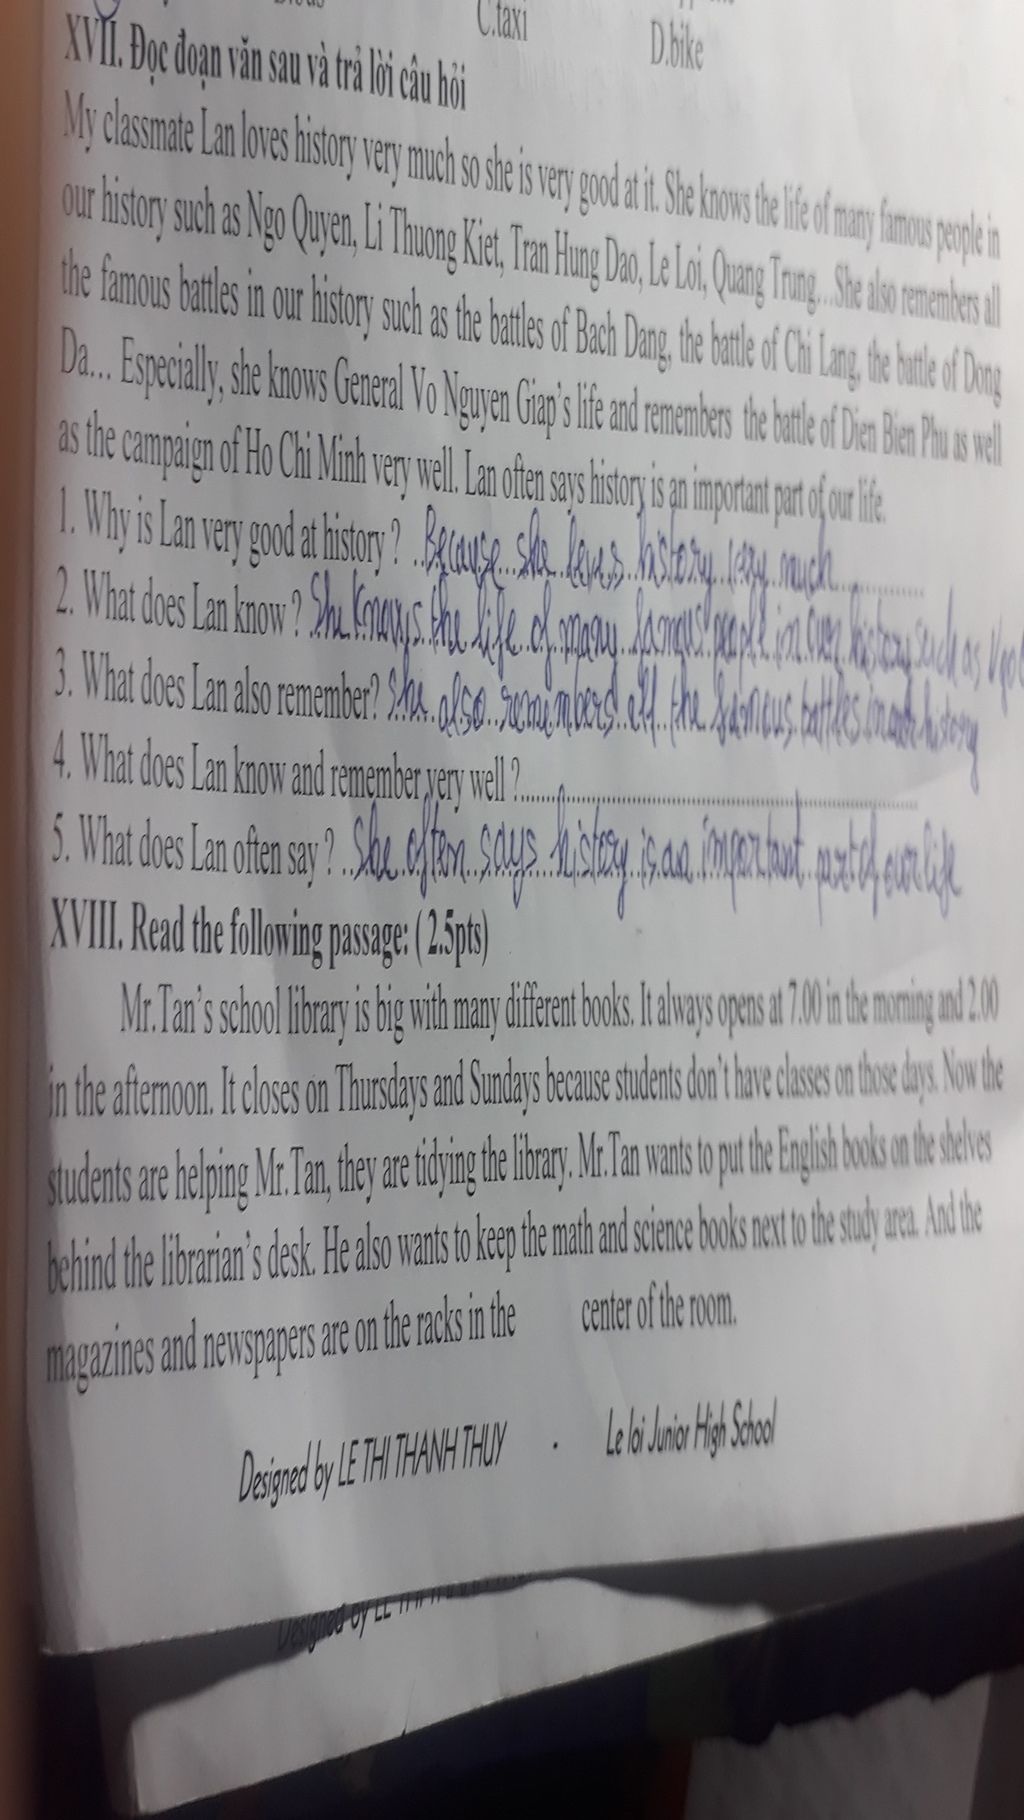 C.taxi
D.bike
XVII. Đọc đoạn văn sau và trả lời câu hỏi
My classmate Lan loves history very much so she is very good at it. She knows the life of many famous people in
our history such as Ngo Quyen, Li Thuong Kiet, Tran Hung Dao, Le Loi, Quang Trung...She also remembers all
the famous battles in our history such as the battles of Bach Dang, the battle of Chi Lang, the battle of Dong
Da... Especially, she knows General Vo Nguyen Giap's life and remembers the battle of Dien Bien Phu as well
as the campaign of Ho Chi Minh very well. Lan often says history is an important part of our life.
1. Why is Lan very good at history ? Because she loves history very much
2. What does Lan know ? She knows the life of many famous people in our history such as
3. What does Lan also remember? She also remembers all the famous battles in our history
4. What does Lan know and remember very well ?
5. What does Lan often say ? She often says history is an important part of our life
XVIII. Read the following passage: ( 2.5pts)
Mr.Tan's school library is big with many different books. It always opens at 7.00 in the morning and 2.00
in the afternoon. It closes on Thursdays and Sundays because students don't have classes on those days. Now the
students are helping Mr.Tan, they are tidying the library. Mr.Tan wants to put the English books on the shelves
behind the librarian's desk. He also wants to keep the math and science books next to the study area. And the
magazines and newspapers are on the racks in the center of the room.
Designed by LE THI THANH THUY - Le loi Junior High School
Designed by LE